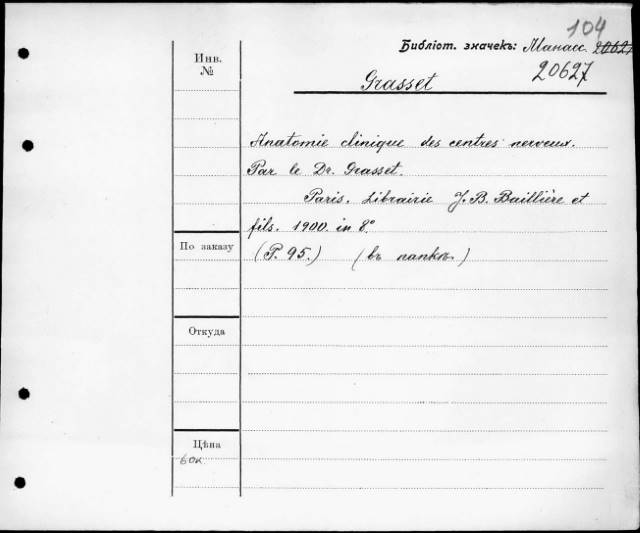 104
Библіот. значекъ: Манас. 20627
20627
Grasset
Инв.
№
Anatomie clinique des centres nerveux.
Par le Dr. Grasset.
Paris. Librairie J. B. Baillière et
fils. 1900. in 8°
По заказу
(P. 95.) (въ папкѣ.)
Откуда
Цѣна
60к